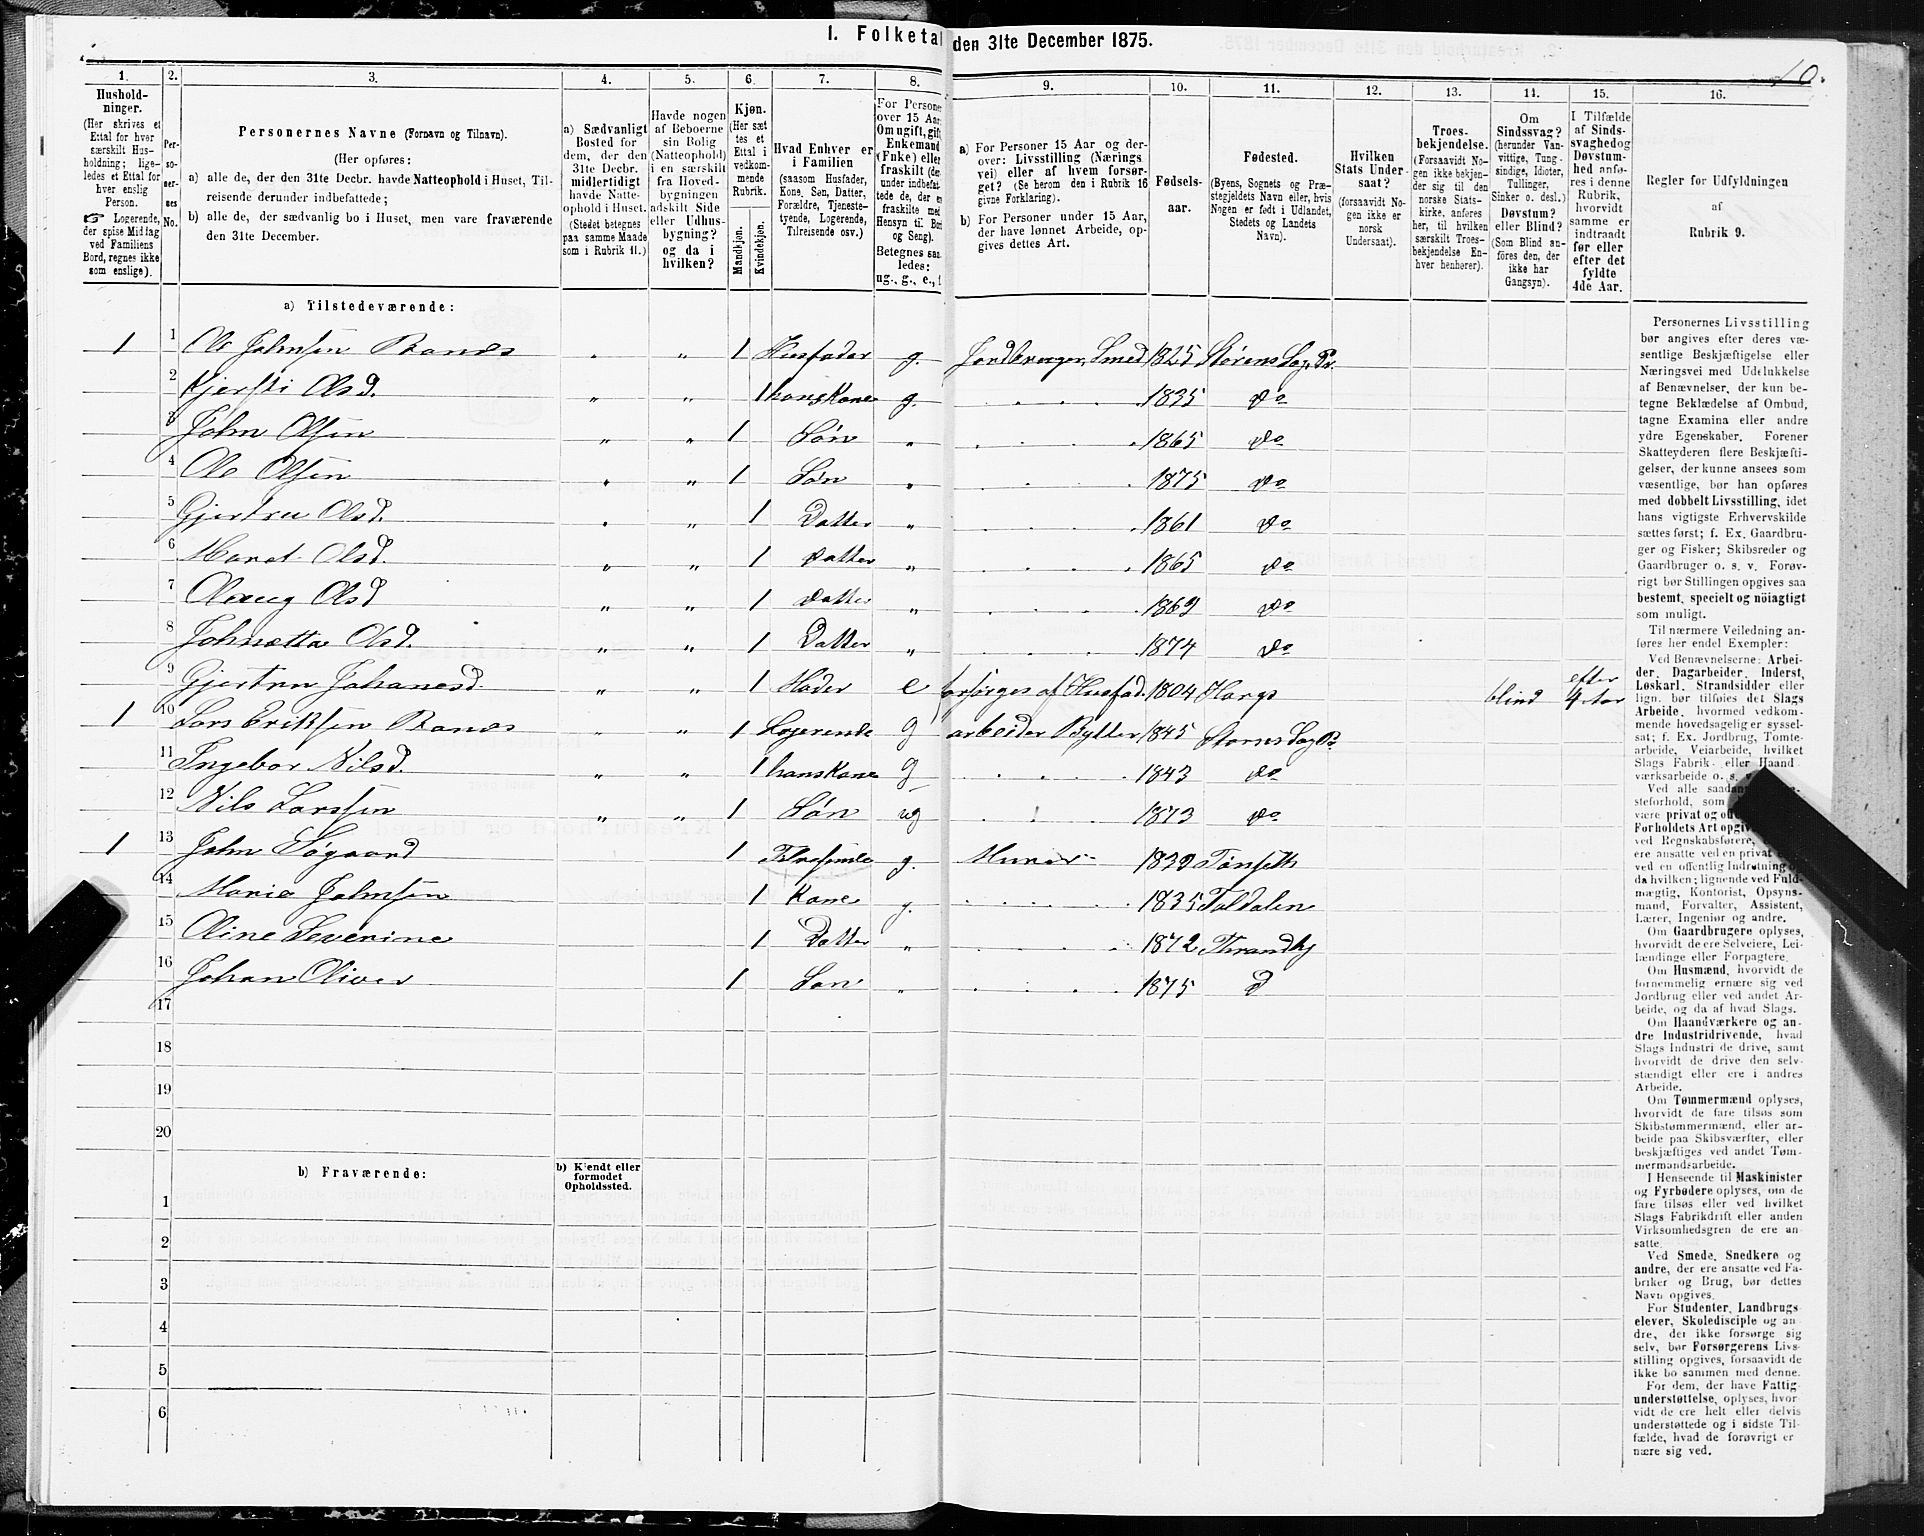 I. Folketal den 31te December 1875.
10.
1. 2. 3. 4. 5. 6. 7. 8. 9. 10. 11. 12. 13. 14. 15. 16.
Hushold-
ninger.
(Her skrives et
Ettal for hver
særskilt Hus-
holdning; lige-
ledes et Ettal for
hver enslig
Person.
☞ Logerende,
der spise Middag
ved Familiens
Bord, regnes ikke
som enslige).
Per-
so-
ner-
nes
No.
Personernes Navne (Fornavn og Tilnavn).
(Her opføres:
a) alle de, der den 31te Decbr. havde Natteophold i Huset, Til-
reisende derunder indbefattede;
b) alle de, der sædvanlig bo i Huset, men vare fraværende
den 31te December.
a) Sædvanligt
Bosted for
dem, der den
31te Decbr.
midlertidigt
havde Natte-
ophold i Huset.
(Stedet betegnes
paa samme Maade
som i Rubrik 11.)
Havde nogen
af Beboerne
sin Bolig
(Natteophold)
i en særskilt
fra Hoved-
bygningen
adskilt Side
eller Udhus-
bygning?
og da i
hvilken?
Kjøn.
(Her sæt
tes et
Ettal i
vedkom-
mende
Rubrik.
Mandkjøn.
Kvindekjøn.
Hvad Enhver er
i Familien
(saasom Husfader,
Kone, Søn, Datter,
Forældre, Tjeneste-
tyende, Logerende,
Tilreisende osv.)
For Personer
over 15 Aar:
Om ugift, gift
Enkemand
(Enke) eller
fraskilt (der
under indbefat-
tede de, der ere
fraskilte med
Hensyn til Bord
og Seng).
Betegnes saa-
ledes:
ug., g., e., f.
a) For Personer 15 Aar og der-
over: Livsstilling (Nærings
vei) eller af hvem forsør-
get? (Se herom den i Rubrik 16
givne Forklaring).
b) For Personer under 15 Aar,
der have lønnet Arbeide, op-
gives dettes Art.
Fødsels-
aar.
Fødested.
(Byens, Sognets og Præ-
stegjeldets Navn eller, hvis
Nogen er født i Udlandet,
Stedets og Landets
Navn).
Hvilken
Stats Under-
saat?
(forsaavidt No-
gen ikke er
norsk
Undersaat).
Troes-
bekjendelse.
(Forsaavidt No-
gen ikke bekjen-
der sig til den
norske Stats-
kirke, anføres
her, til hvilken
særskilt Troes-
bekjendelse En-
hver henhører).
Om
Sindssvag?
(herunder Van-
vittige, Tung-
sindige, Idioter,
Tullinger,
Sinker o. desl.)
Døvstum?
eller Blind?
(Som Blind an-
føres den, der
ikke har
Gangsyn).
I Tilfælde
af Sinds-
svaghed og
Døvstum-
hed anfø-
res i denne
Rubrik,
hvorvidt
samme er
indtraadt
før eller
efter det
fyldte
4de Aar.
Regler for Udfyldningen
af
Rubrik 9.
a) Tilstedeværende:
1 1 Ole Johnsen Ranes „ „ 1 Husfader g. Jordbruger, Smed 1825 Størens Sog. Pr.
2 Kjersti Olsd. „ „ 1 hans Kone g. 1835 Do
3 John Olsen „ „ 1 Søn „ 1865 Do
4 Ole Olsen „ „ 1 Søn „ 1875 Do
5 Gjertru Olsd. „ „ 1 Datter „ 1861 Do
6 Maret Olsd. „ „ 1 Datter „ 1865 Do
7 Olaug Olsd „ „ 1 Datter „ 1869 Do
8 Johnetta Olsd. „ „ 1 Datter „ 1874 Do
9 Gjertru Johanesd. „ „ 1 Moder e forsørges af Husfad. 1804 Horgs blind efter 4 Aar
1 10 Lars Eriksen Ranes „ „ 1 Logerende g arbeider 1845 Størens Sog Pr
11 Ingebor Nilsd. „ „ 1 hans Kone g 1843 Do
12 Nils Larssen „ „ 1 Søn ug 1873 Do
1 13 John Søgaard 1 g. Murer 1832 Tønseth
14 Maria Johnsen 1 Kone g. 1835 Foldalen
15 Oline Severine 1 Datter „ 1872
16 Johan Oliver 1 Søn „ 1875 D
17
18
19
20
b) Fraværende:
b) Kjendt eller
formodet
Opholdssted.
1
2
3
4
5
6
Personernes Livsstilling
bør angives efter deres væ-
sentlige Beskjæftigelse eller
Næringsvei med Udelukkelse
af Benævnelser, der kun be-
tegne Beklædelse af Ombud,
tagne Examina eller andre
ydre Egenskaber. Forener
Skatteyderen flere Beskjæfti-
gelser, der kunne ansees som
væsentlige, bør han opføres
med dobbelt Livsstilling, idet
hans vigtigste Erhvervskilde
sættes først; f. Ex. Gaardbru-
ger og Fisker; Skibsreder og
Gaardbruger o. s. v. Forøv-
rigt bør Stillingen opgives saa
bestemt, specielt og nöiagtigt
som muligt.
Til nærmere Veiledning an-
føres her endel Exempler:
Ved Benævnelserne: Arbei-
der, Dagarbeider, Inderst,
Løskarl, Strandsidder eller
lign. bør tilføies det Slags
Arbeide, hvormed vedkom-
mende hovedsagelig er syssel-
sat; f. Ex. Jordbrug, Tomte-
arbeide, Veiarbeide, hvilket
Slags Fabrik- eller Haand
værksarbeide o. s. v.
Ved alle saadan
steforhold, som
være privat og of
Forholdets Art opgiv
ved Regnskabsførere,
ere ansatte ved en privat
ved en offentlig Indretning
da hvilken; lignende ved Fuld-
mægtig, Kontorist, Opsyns-
mand, Forvalter, Assistent,
Lærer, Ingeniør og andre.
Om Gaardbrugere oplyses,
hvorvidt de ere Selveiere, Lei-
lændinge eller Forpagtere.
Om Husmænd, hvorvidt de
fornemmelig ernære sig ved
Jordbrug eller ved andet Ar-
beide, og da af hvad Slags.
Om Haandværkere og an-
dre Industridrivende, hvad
Slags Industri de drive, samt
hvorvidt de drive den selv-
stændigt eller ere i andres
Arbeide.
Om Tømmermænd oplyses,
hvorvidt de fare tilsøs som
Skibstømmermænd, eller ar-
beide paa Skibsværfter, eller
beskjæftiges ved andet Tøm-
mermandsarbeide.
I Henseende til Maskinister
og Fyrbødere oplyses, om de
fare tilsøs eller ved hvilket
Slags Fabrikdrift eller anden
Virksomhedsgren de ere an-
satte.
Ved Smede, Snedkere og
andre, der ere ansatte ved Fa-
briker og Brug, bør dettes
Navn opgives.
For Studenter, Landbrugs-
elever, Skoledisciple og an-
dre, der ikke forsørge sig
selv, bør Forsørgerens Livs-
stilling opgives, forsaavidt de
ikke bo sammen med denne.
For dem, der have Fattig-
understøttelse, oplyses, hvor-
vidt de ere helt eller delvis
understøttede og i sidste Til-
fælde, hvad de forøvrigt er
nære sig ved.